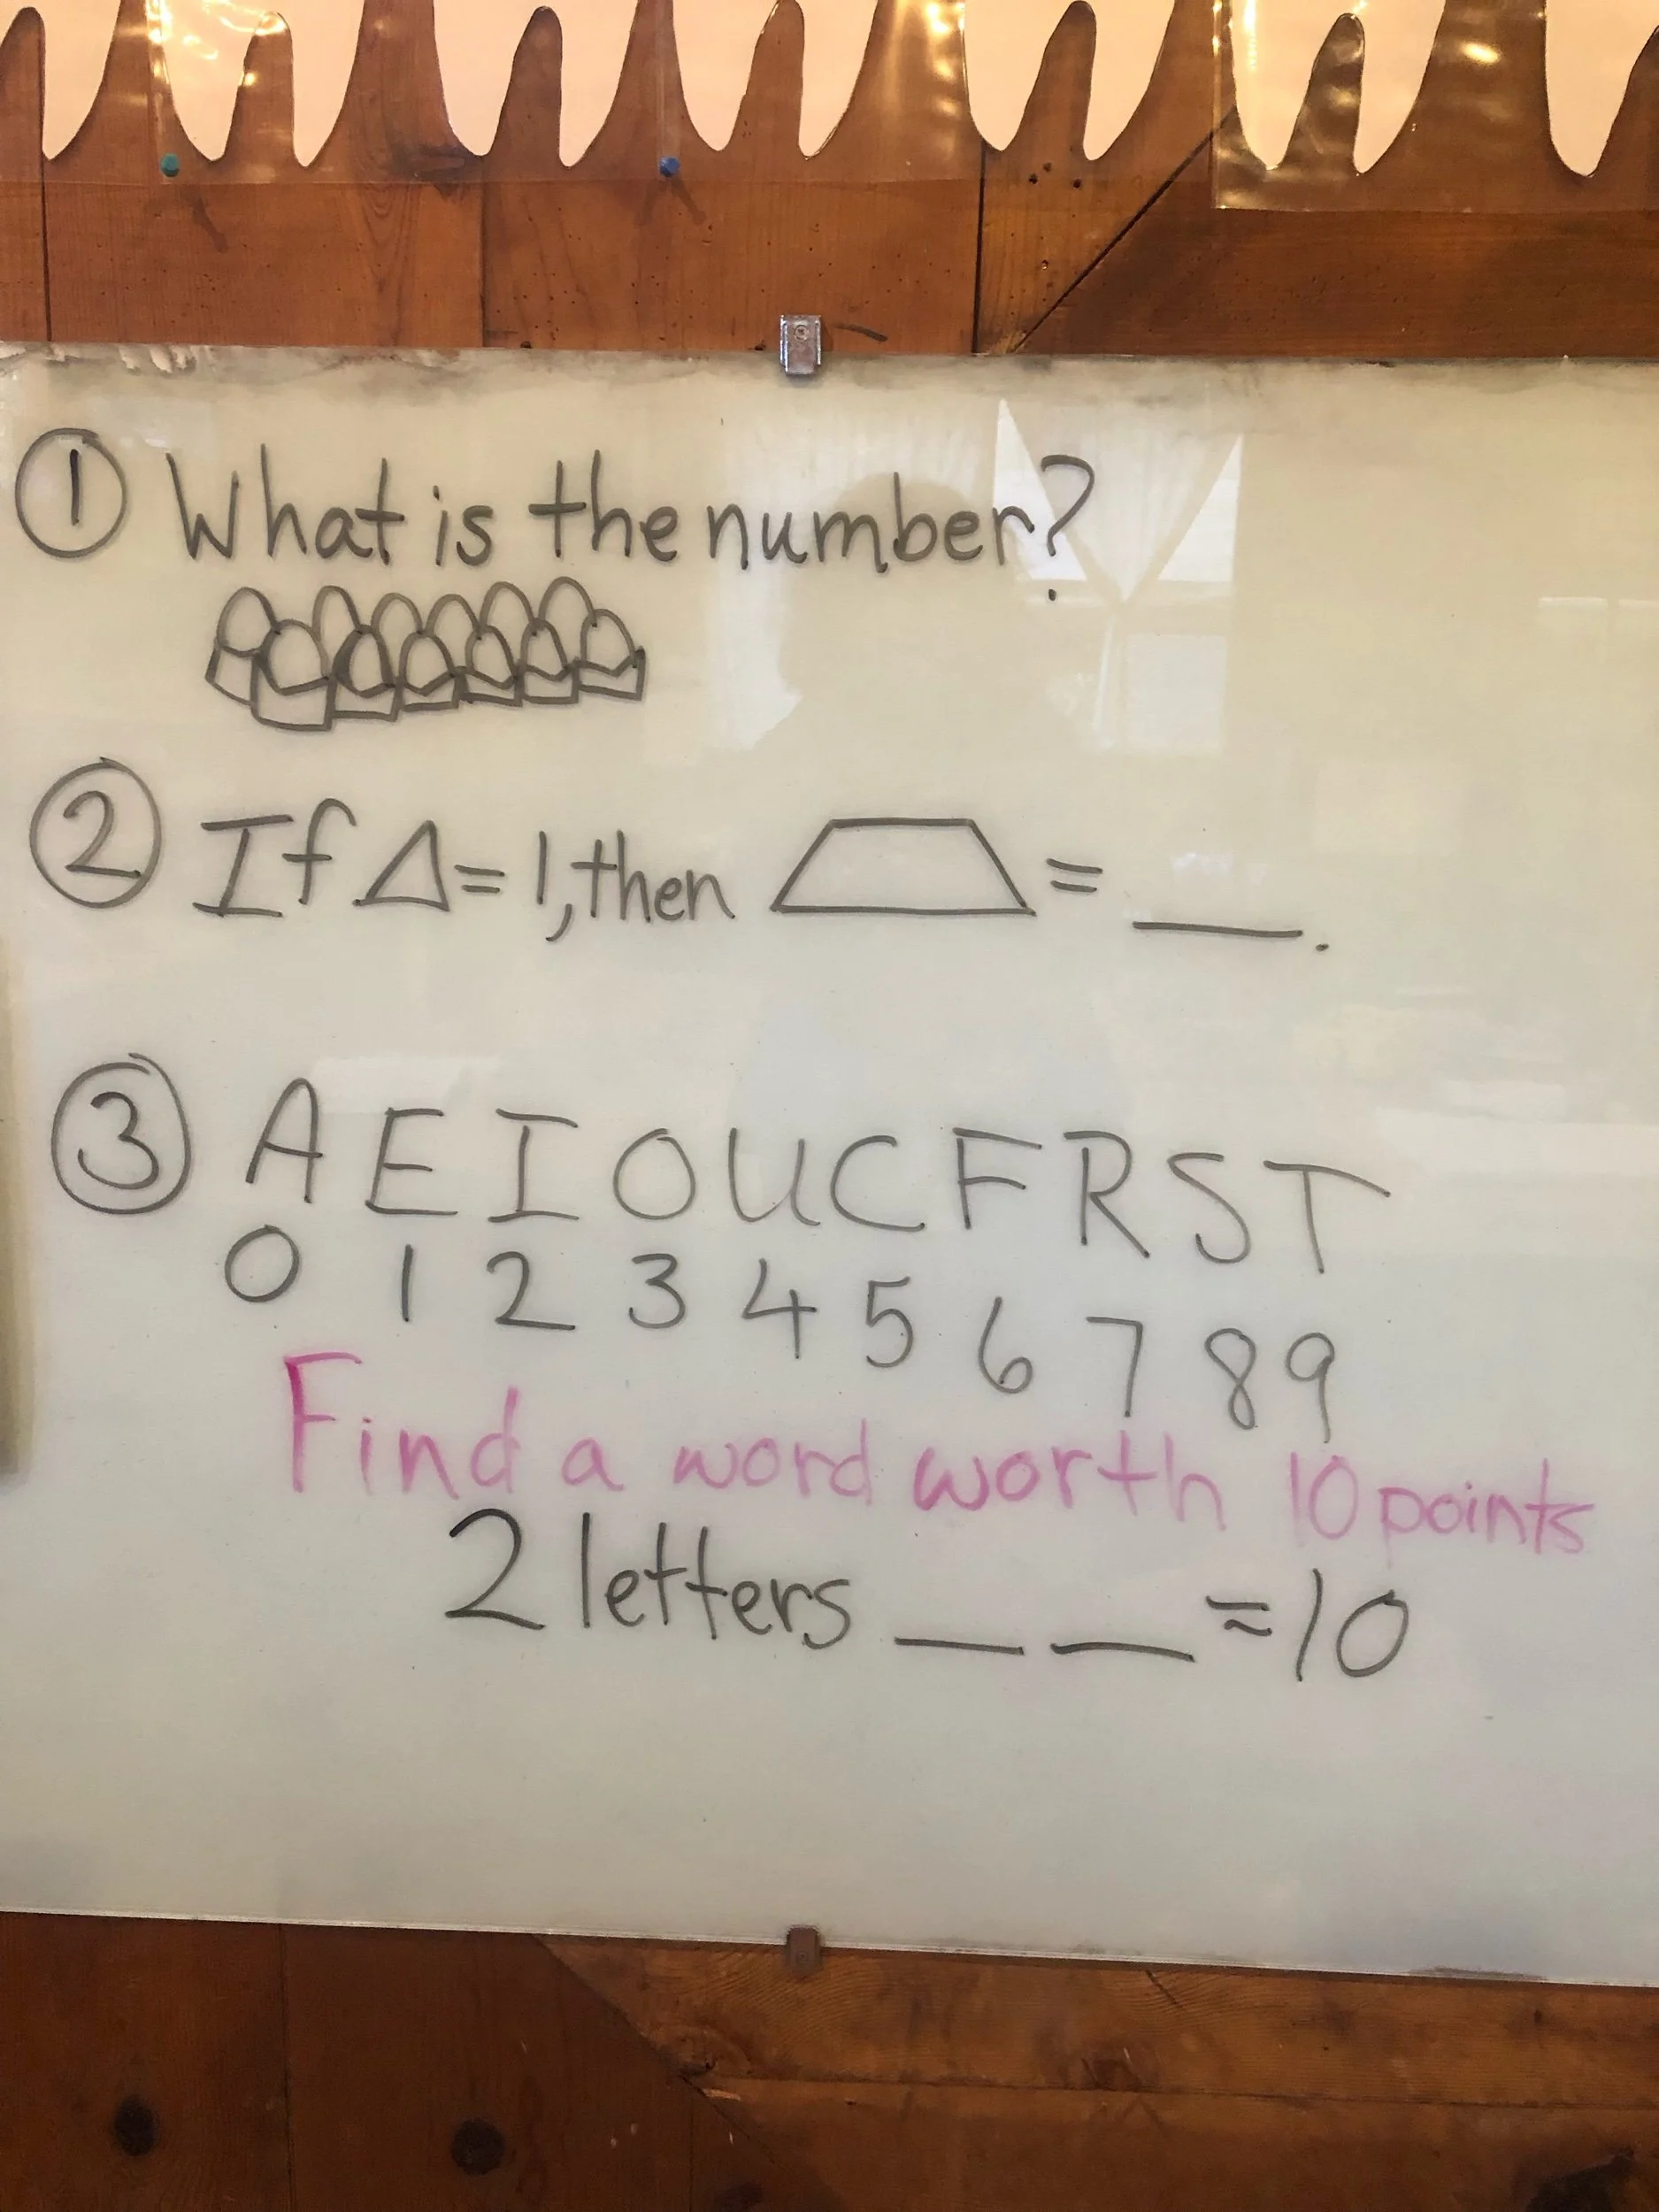 ① What is the number?
② If △ = 1, then ⏢ = __.
③ A E I O U C F R S T
0 1 2 3 4 5 6 7 8 9
Find a word worth 10 points
2 letters __ __ = 10